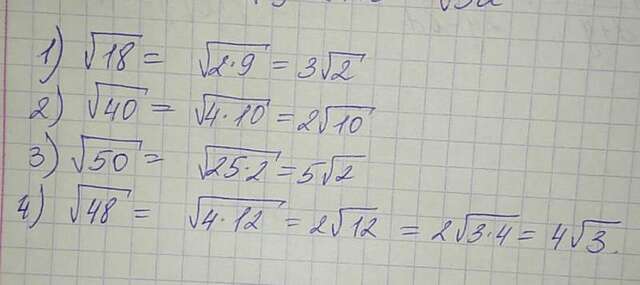 1) √18 = √2·9 = 3√2
2) √40 = √4·10 = 2√10
3) √50 = √25·2 = 5√2
4) √48 = √4·12 = 2√12 = 2√3·4 = 4√3.